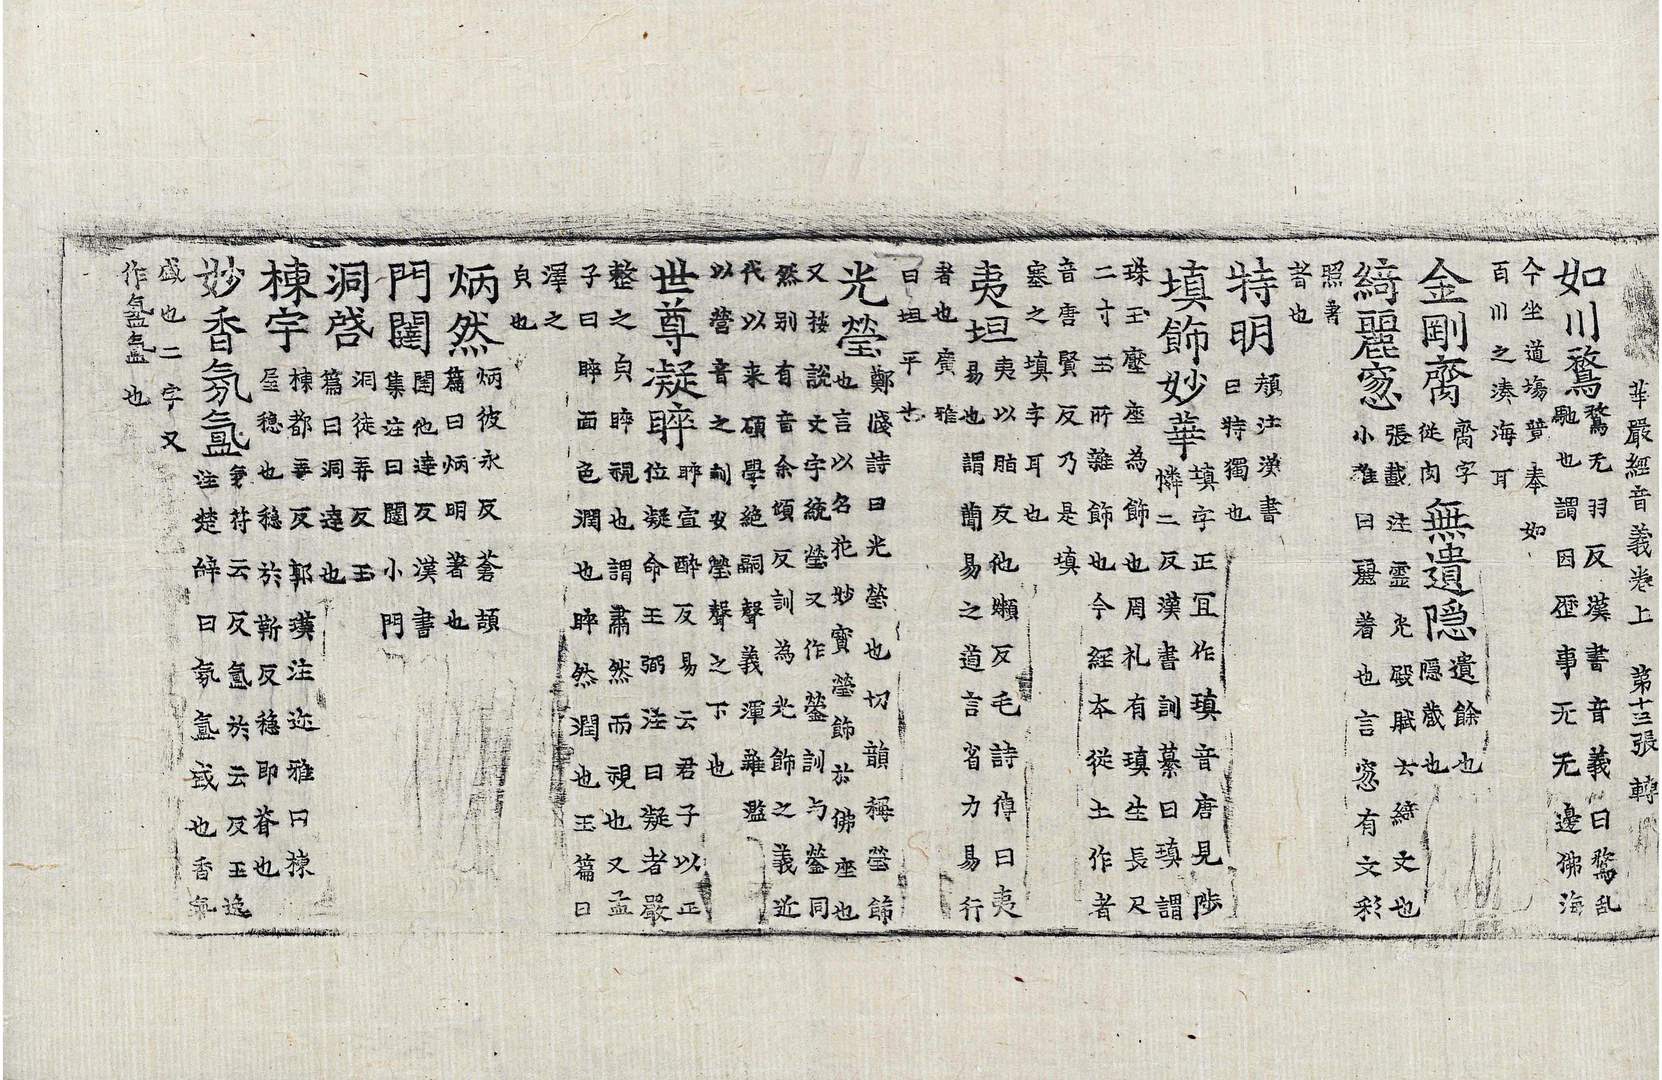 華嚴經音義卷上 第十三張 轉
如川騖 騖无羽反漢書音義曰騖乱
馳也謂因歴事无无邊佛海
今坐道塲贊奉如
百川之湊海耳
金剛臍 臍字從肉 無遺隠 遺餘也隠蔵也
綺麗窓 張載注霊光殿賦云綺文也
小雅曰麗着也言窓有文彩
照
者也
特明 頽注漢書
曰特獨也
填飾妙華 填字正冝作瑱音唐見陟
憐二反漢書訓纂曰瑱謂
珠玉壓座為飾也周礼有瑱生長尺
二寸玉所雜飾也今經本從土作者
音唐賢反乃是填
塞之填字耳也
夷坦 夷以脂反他嬾反毛詩傳曰夷
易也謂蕳易之道言省力易行
者也廣雅
曰坦平也
光瑩 鄭牋詩曰光瑩也切韻稱瑩飾
也言以名花妙寳瑩飾於佛座也
又按說文字統瑩又作鎣訓与鎣同
然别有音余頃反訓為光飾之義近
代以来碩學絶嗣聲義渾雜濫
以營音之訓安瑩聲之下也
世尊凝睟 睟宣醉反易云君子以正
位凝命王弼注曰凝者嚴
整之皃睟視也謂肅然而視也又孟
子曰睟面色潤也睟然潤也玉篇曰
澤之
皃也
炳然 炳彼永反蒼頡
篇曰炳明著也
門闥 闥他達反漢書
集注曰闥小門
洞啓 洞徒弄反玉
篇曰洞達也
棟宇 棟都弄反郭璞注迩雅曰棟
屋穏也穏於靳反穏即脊也
妙香氛氲 氛符云反氲於云反王逸
注楚辞曰氛氲盛也香氣
盛也二字又
作氲氲也